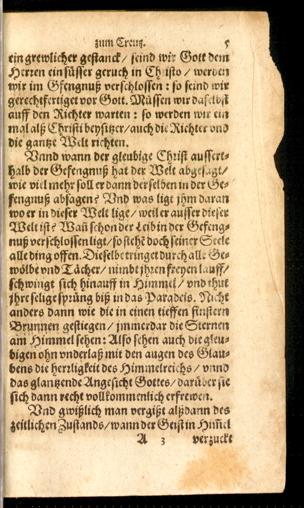 zum Creutz. 5
ein grewlicher gestanck / seind wir Gott dem
Herren ein süsser geruch in Christo / werden
wir im Gfengnuß verschlossen : so seind wir
gerechtfertiget vor Gott. Müssen wir daselbst
auff den Richter warten : so werden wir ein
mal als Christi beysitzer / auch die Richter vnd
die gantze Welt richten.
Vnnd wann der gleubige Christ ausser-
halb der Gefengnuß hat der Welt abgesagt /
wie viel mehr soll er dann derselben in der Ge-
fengnuß absagen? Vnd was ligt jhm daran
wo er in dieser Welt lige / weil er ausser dieser
Welt ist? Wañ schon der Leib in der Gefeng-
nuß verschlossen ligt / so steht doch seiner Seele
alle ding offen. Dieselbe tringet durch alle Ge-
wölbe vnd Tächer / nimbt jhren freyen lauff /
schwingt sich hinauff in Himmel / vnd thut
jhre selige sprüng biß in das Paradeis. Nicht
anders dann wie die in einen tieffen finstern
Brunnen gestiegen / jmmerdar die Sternen
am Himmel sehen: Also sehen auch die gleu-
bigen ohn vnderlaß mit den augen des Glau-
bens die herzligkeit des Himmelreichs / vnnd
das glantzende Angesicht Gottes / darüber sie
sich dann recht vollkommenlich erfrewen.
Vnd gwißlich man vergißt alßdann des
zeitlichen Zustands / wann der Geist in Him̃el
A 3 verzuckt